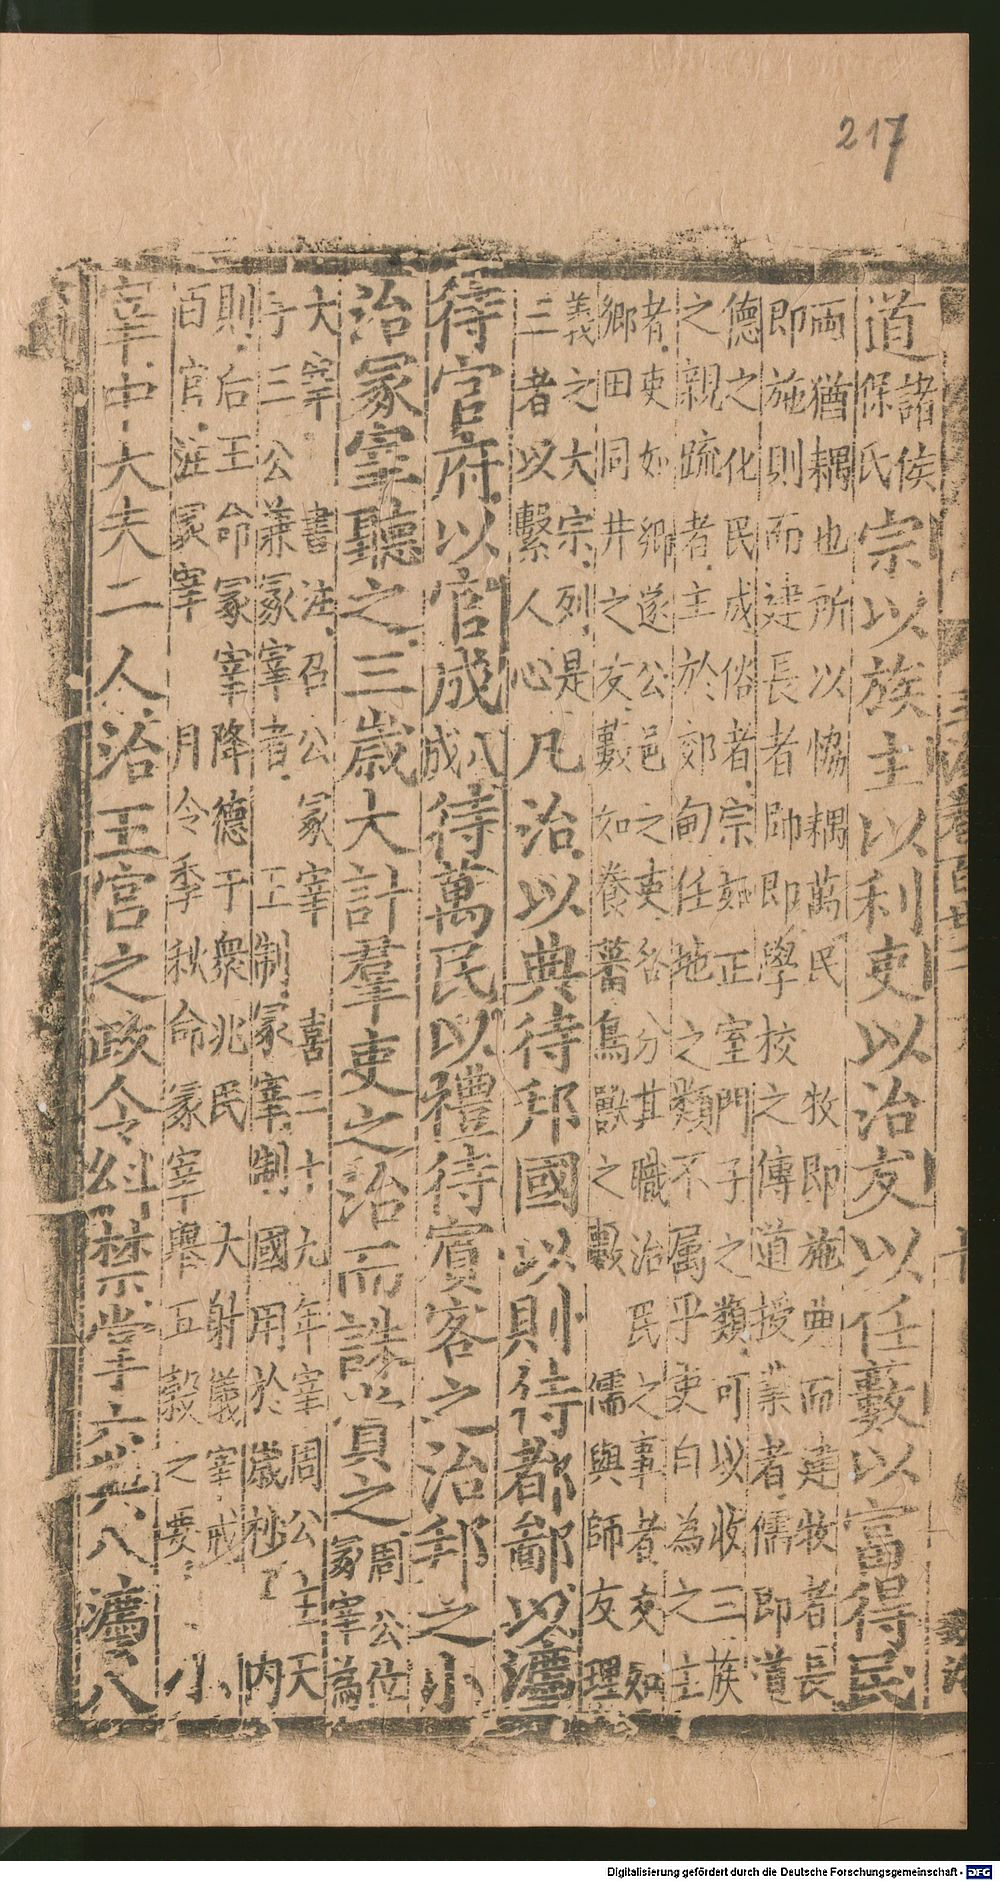 217
道諸侯保氏宗以族主以利吏以治友以任藪以富得民
両猶耦也所以協耦萬民　牧即施典而建牧者長
即施則而建長者師即學校之傳道授業者儒即道
德之化民成俗者宗如正室門子之類可以收三族
之親疏者主於郊甸任地之類不属乎吏自為之主
者吏如鄉遂公邑之吏各分其職治民之事者友如
鄉田同井之友藪如養蕃鳥獸之藪　儒與師友理
義之大宗列是
三者以繫人心
凡治以典待邦國以則待都鄙以灋
待官府以官成八成待萬民以禮待賓客之治邦之小
治冢宰聽之三歲大計羣吏之治而誅賞之周公位冢宰為
大宰　書注召公冡宰　喜二十九年宰周公　主天
子三公兼冡宰者　王制冡宰制國用於歲杪　内
則后王命冡宰降德于衆兆民　大射儀宰戒
百官注冡宰　月令季秋命冡宰舉五穀之要
小
宰中大夫二人治王宮之政令糾禁掌六典八灋八
Digitalisierung gefördert durch die Deutsche Forschungsgemeinschaft - DFG